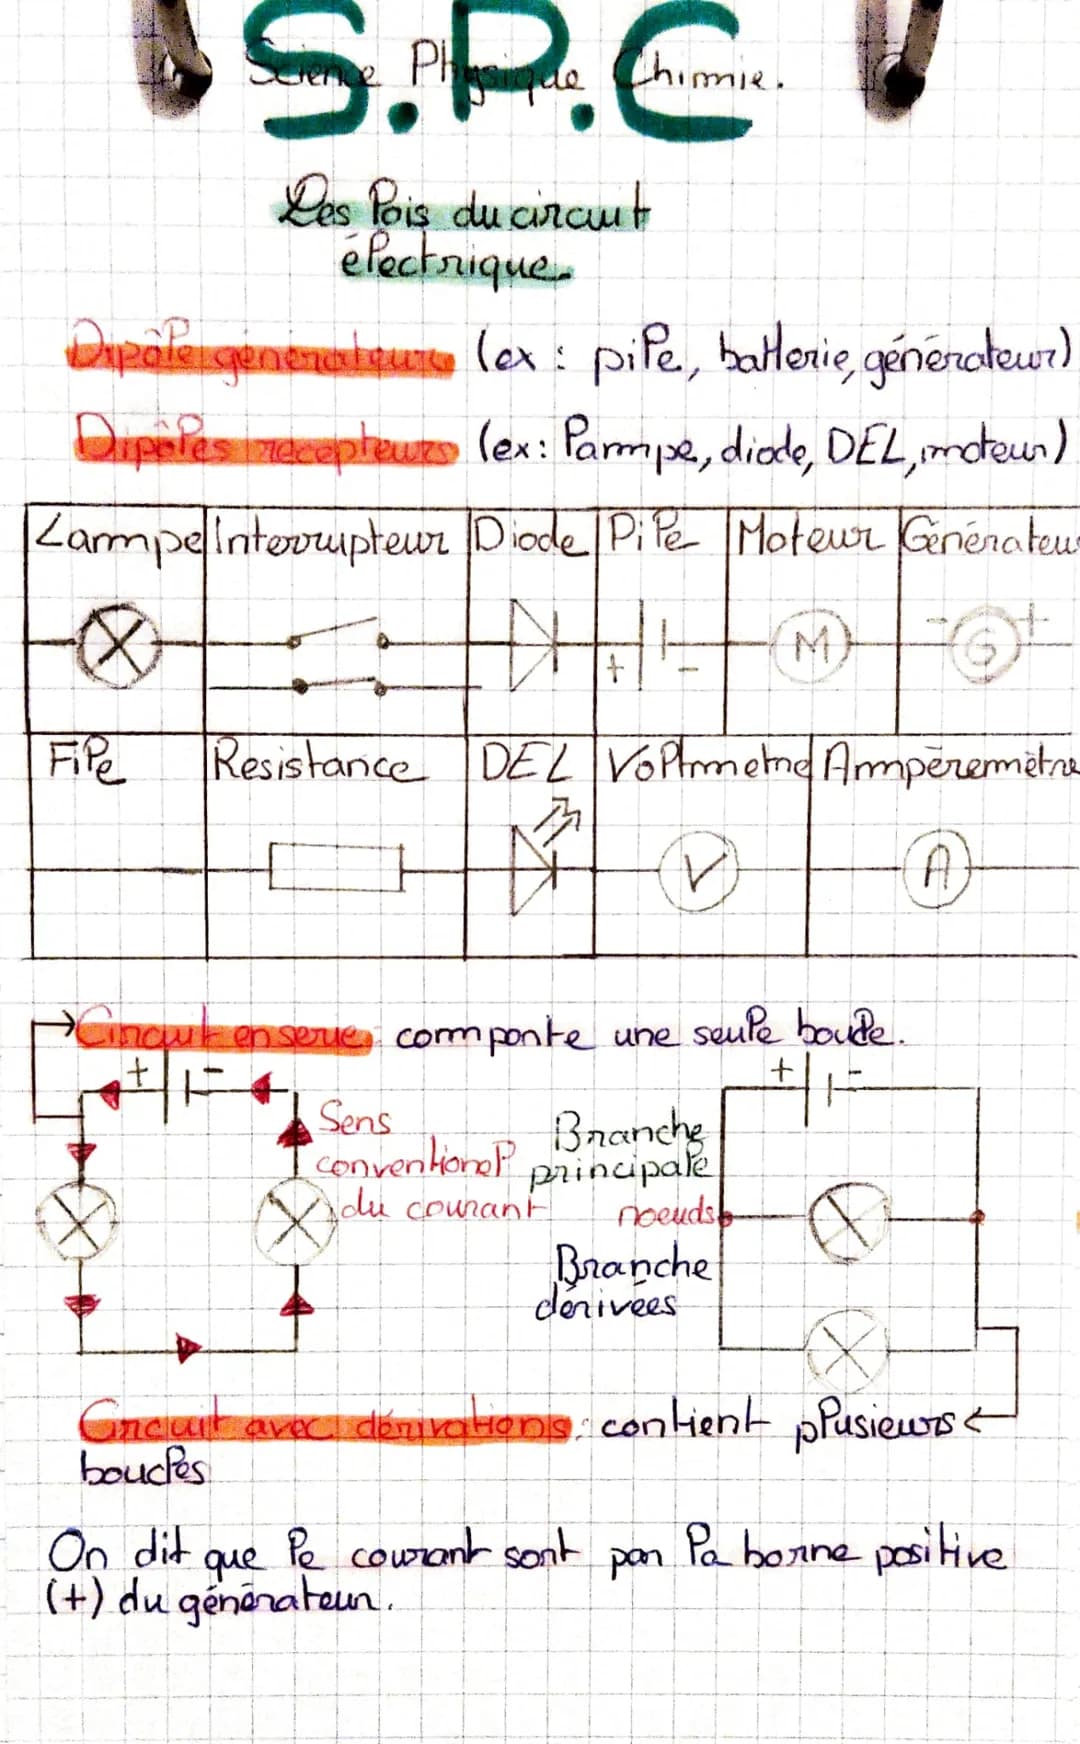 S.P.C
Science Physique Chimie.
Les lois du circuit
électrique.
Dipôle générateurs (ex : pile, batterie, générateur)
Dipôles récepteurs (ex : lampe, diode, DEL, moteur)
Lampe Interrupteur Diode Pile Moteur Générateur
+ - M - G +
File Resistance DEL Voltmetre Ampèremètre
V A
Circuit en serie : comporte une seule boucle.
+ -
+ -
Sens
conventionel
du courant
Branche
principale
noeuds
Branche
dérivées
Circuit avec dérivations : contient plusieurs
boucles
On dit que le courant sont par la borne positive
(+) du générateur.